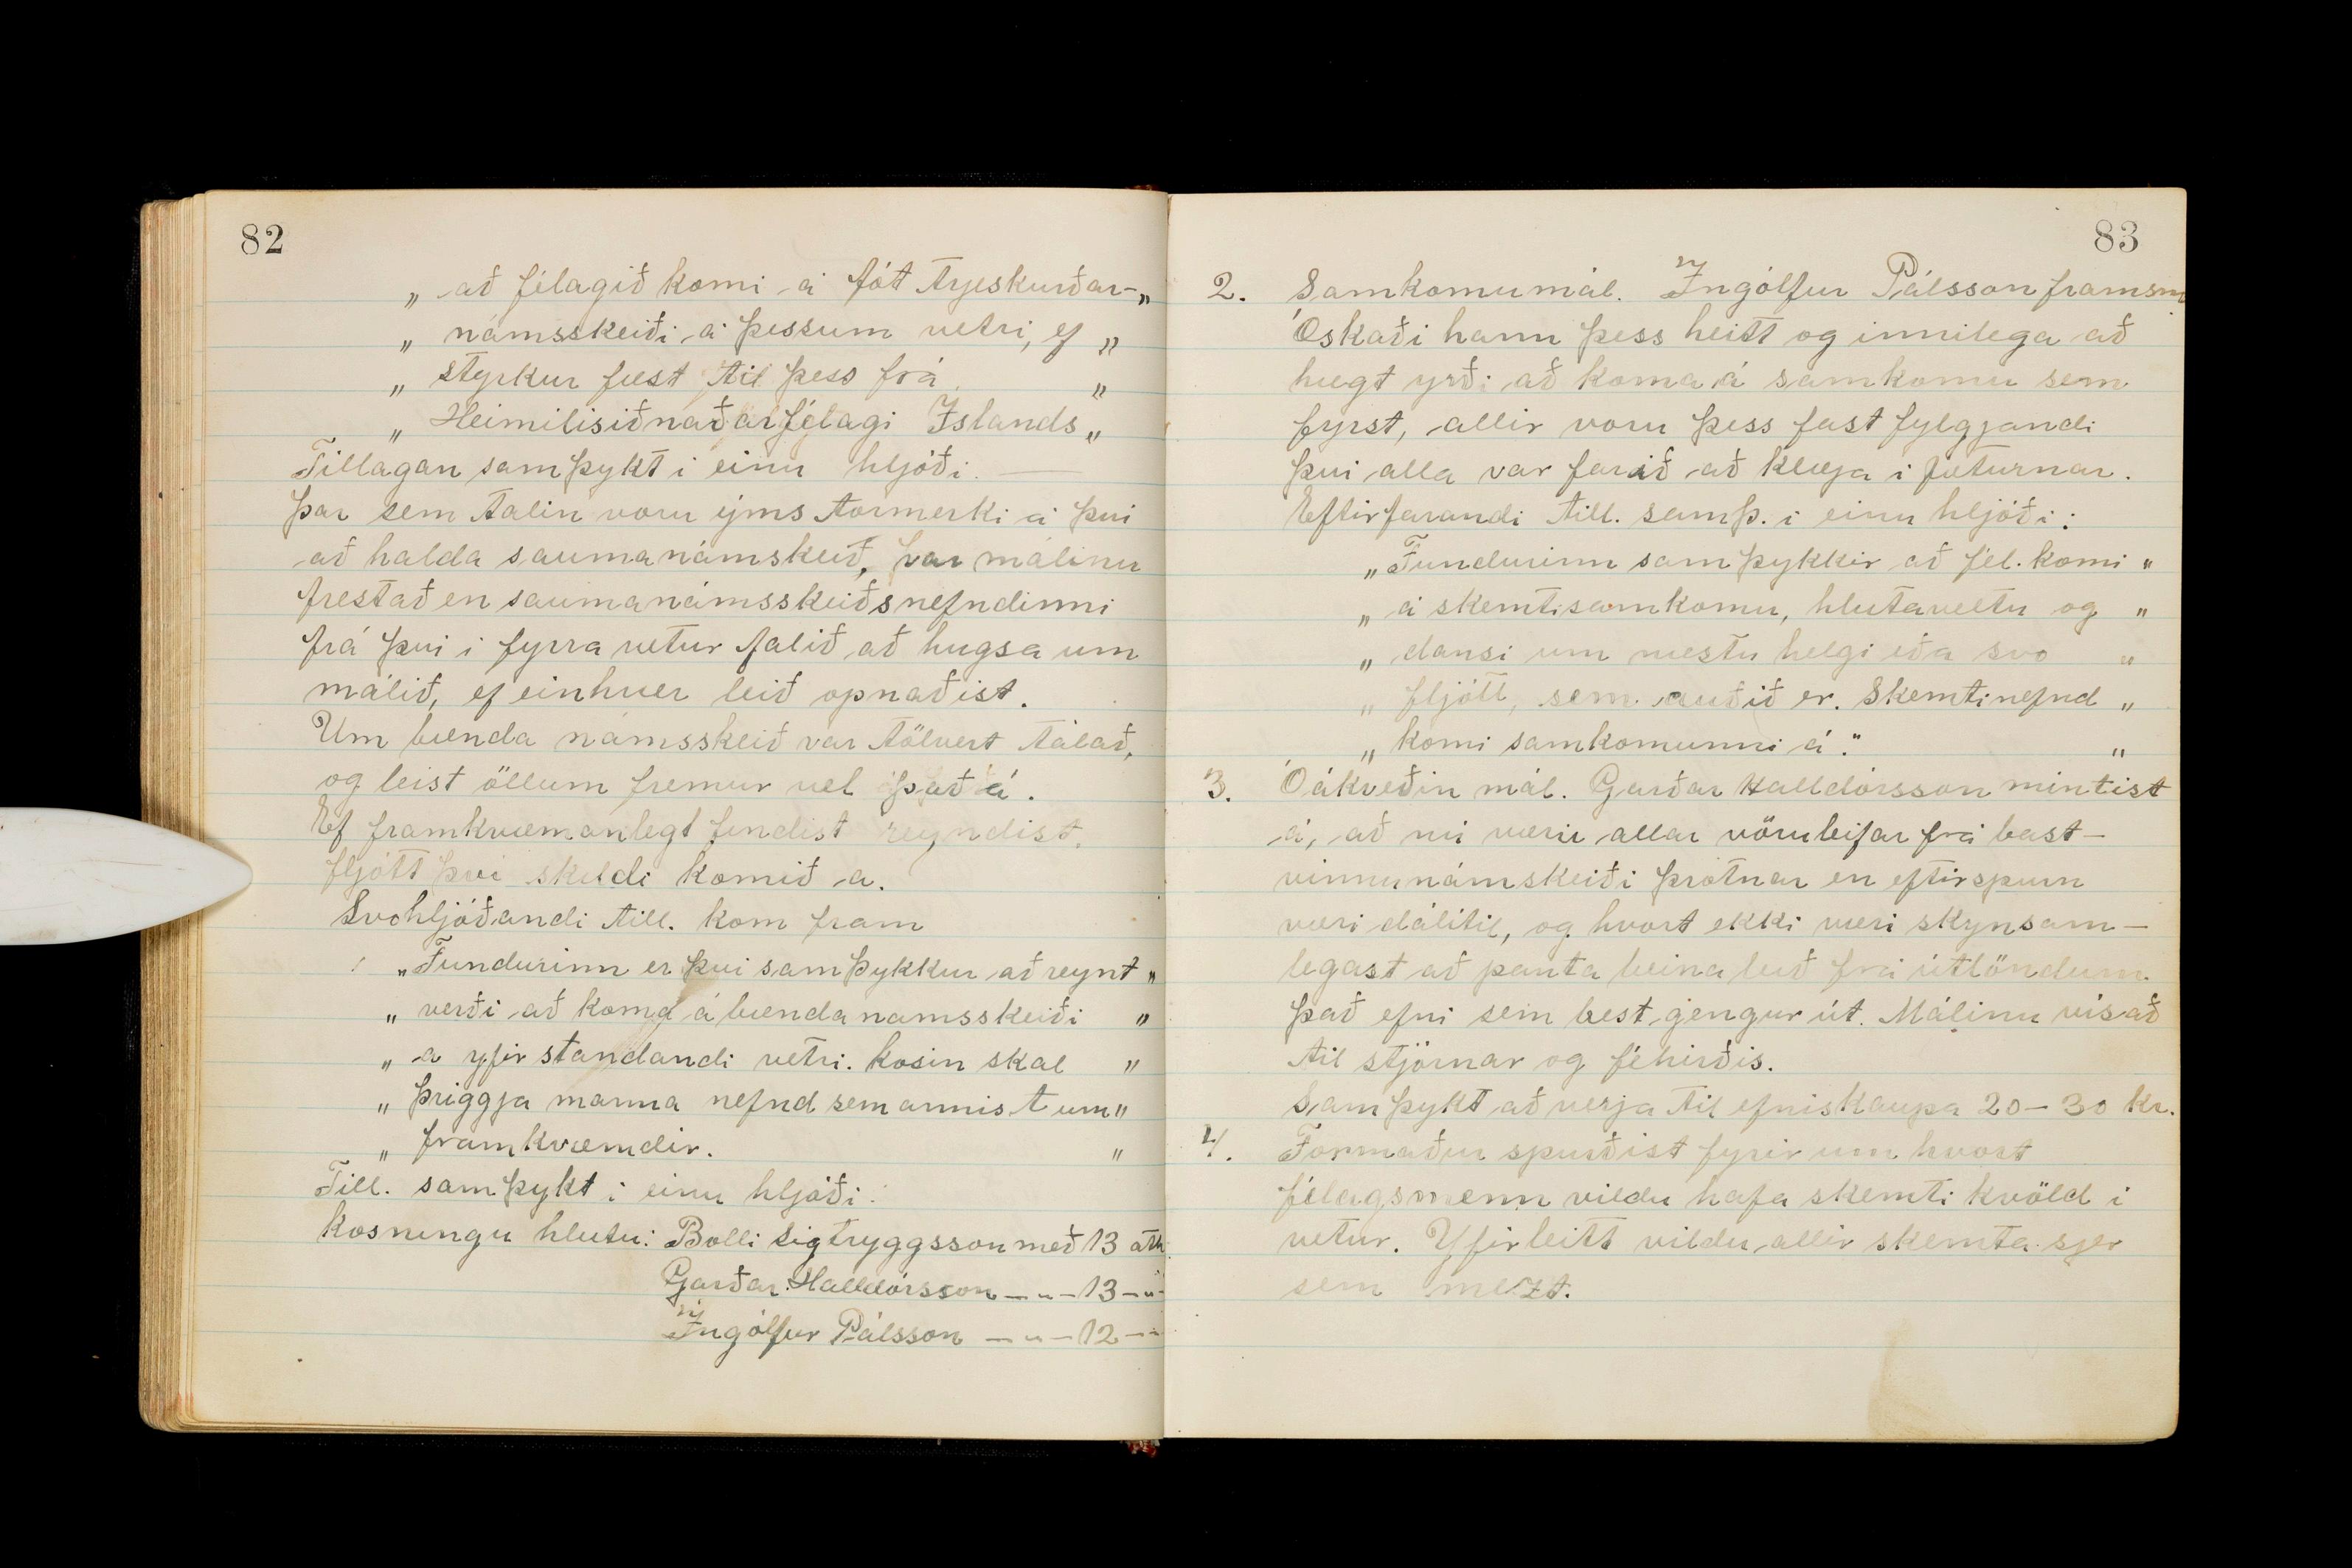 82
„ að félagið komi á fót trjeskurðar- „
„ námsskeiði á þessum vetri, ef „
„ styrkur fæst til þess frá „
„ Heimilisiðnaðarfélagi Íslands „
Tillagan samþykt í einu hljóði. —
Þar sem talin voru ýms tormerki á því
að halda saumanámskeið, var málinu
frestað en saumanámsskeiðsnefndinni
frá því í fyrra vetur falið að hugsa um
málið, ef einhver leið opnaðist.
Um bændanámsskeið var tölvert talað,
og leist öllum fremur vel það á.
Ef framkvæmanlegt fendist reyndist,
fljótt því skildi komið á.
Svohljóðandi till. kom fram
„ Fundurinn er því samþykkur að reynt „
„ verði að koma á bændanamsskeiði „
„ a yfirstandandi vetri. Kosin skal „
„ þriggja manna nefnd sem annist um „
„ framkvæmdir. „
Till. samþykt í einu hljóði.
Kosningu hlutu: Bolli Sigtryggsson með 13 atk.
Garðar Halldórsson — „ — 13 — „ —
Ingólfur Pálsson — „ — 12 — „
83
2. Samkomumál. Ingólfur Pálsson framsm.
Óskaði hann þess heitt og innilega að
hægt yrði að koma á samkomu sem
fyrst, allir voru þess fast fylgjandi
því alla var farið að klæja í fæturnar.
Eftirfarandi till. samþ. í einu hljóði:
„ Fundurinn samþykkir að fél. komi „
„ á skemtisamkomu, hlutaveltu og „
„ dansi um næstu helgi eða svo „
„ fljótt, sem auðið er. Skemtinefnd „
„ komi samkomunni á." „
3. Óákveðin mál. Garðar Halldórsson mintist
á, að nú væru allar vöruleifar frá bast-
vinnunámskeiði þrotnar en eftirspurn
væri dálítil, og hvort ekki væri skynsam-
legast að panta beina leið frá útlöndum
það efni sem best gengur út. Málinu vísað
til stjórnar og féhirðis.
Samþykt að verja til efniskaupa 20-30 kr.
4. Formaður spurðist fyrir um hvort
félagsmenn vildu hafa skemtikvöld í
vetur. Yfirleitt vildu allir skemta sjer
sem mezt.